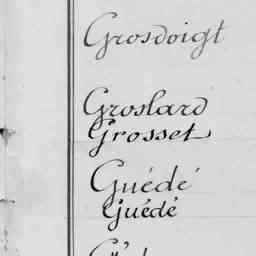 Grosdoigt
Groslard
Grosset
Guédé
Guédé